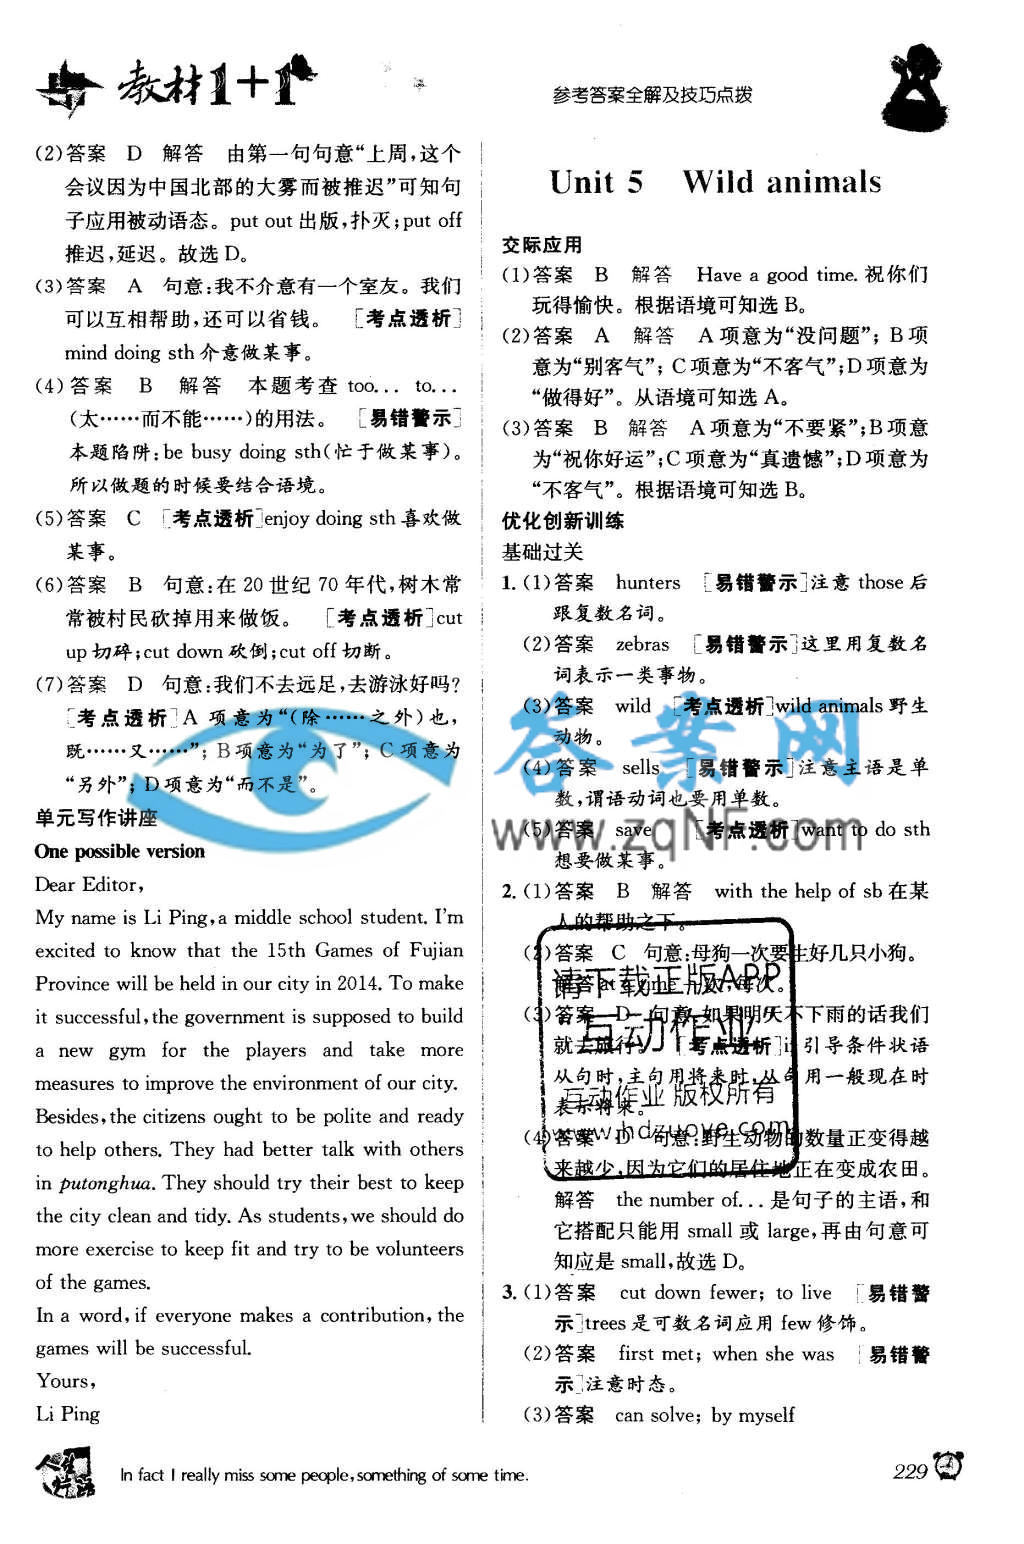 教材1+1
参考答案全解及技巧点拨
(2)答案 D 解答 由第一句句意“上周,这个
会议因为中国北部的大雾而被推迟”可知句
子应用被动语态。put out 出版,扑灭;put off
推迟,延迟。故选 D。
(3)答案 A 句意:我不介意有一个室友。我们
可以互相帮助,还可以省钱。 [考点透析]
mind doing sth 介意做某事。
(4)答案 B 解答 本题考查 too... to...
(太……而不能……)的用法。 [易错警示]
本题陷阱:be busy doing sth(忙于做某事)。
所以做题的时候要结合语境。
(5)答案 C [考点透析]enjoy doing sth 喜欢做
某事。
(6)答案 B 句意:在 20 世纪 70 年代,树木常
常被村民砍掉用来做饭。 [考点透析]cut
up 切碎;cut down 砍倒;cut off 切断。
(7)答案 D 句意:我们不去远足,去游泳好吗?
[考点透析]A 项意为“(除……之外)也,
既……又……”; B 项意为“为了”; C 项意为
“另外”; D 项意为“而不是”。
单元写作讲座
One possible version
Dear Editor,
My name is Li Ping,a middle school student. I'm
excited to know that the 15th Games of Fujian
Province will be held in our city in 2014. To make
it successful,the government is supposed to build
a new gym for the players and take more
measures to improve the environment of our city.
Besides,the citizens ought to be polite and ready
to help others. They had better talk with others
in putonghua. They should try their best to keep
the city clean and tidy. As students,we should do
more exercise to keep fit and try to be volunteers
of the games.
In a word,if everyone makes a contribution,the
games will be successful.
Yours,
Li Ping
Unit 5 Wild animals
交际应用
(1)答案 B 解答 Have a good time. 祝你们
玩得愉快。根据语境可知选 B。
(2)答案 A 解答 A 项意为“没问题”; B 项
意为“别客气”; C 项意为“不客气”;D 项意为
“做得好”。从语境可知选 A。
(3)答案 B 解答 A 项意为“不要紧”;B 项意
为“祝你好运”;C 项意为“真遗憾”;D 项意为
“不客气”。根据语境可知选 B。
优化创新训练
基础过关
1. (1)答案 hunters [易错警示]注意 those 后
跟复数名词。
(2)答案 zebras [易错警示]这里用复数名
词表示一类事物。
(3)答案 wild [考点透析]wild animals 野生
动物。
(4)答案 sells [易错警示]注意主语是单
数,谓语动词也要用单数。
(5)答案 save [考点透析]want to do sth
想要做某事。
2. (1)答案 B 解答 with the help of sb 在某
人的帮助之下。
(2)答案 C 句意:母狗一次要生好几只小狗。
解答 at a time 一次,每次。
(3)答案 D 句意:如果明天不下雨的话我们
就去旅行。 [考点透析]if 引导条件状语
从句时,主句用将来时,从句用一般现在时
表示将来。
(4)答案 D 句意:野生动物的数量正变得越
来越少,因为它们的居住地正在变成农田。
解答 the number of... 是句子的主语,和
它搭配只能用 small 或 large,再由句意可
知应是 small,故选 D。
3. (1)答案 cut down fewer; to live [易错警
示]trees 是可数名词应用 few 修饰。
(2)答案 first met; when she was [易错警
示]注意时态。
(3)答案 can solve; by myself
答案网
www.zqNF.com
请下载正版APP
互动作业
互动作业 版权所有
www.hdzuoye.com
In fact I really miss some people,something of some time.
229